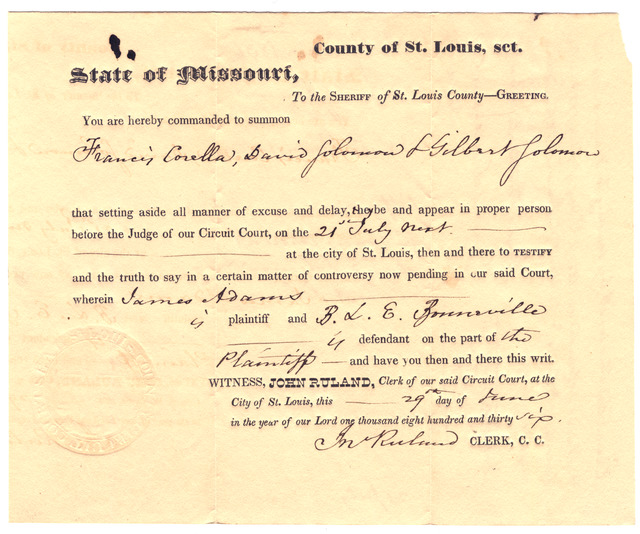 County of St. Louis, sct.
State of Missouri,
To the SHERIFF of St. Louis County—GREETING.
You are hereby commanded to summon
Francis Corella, David Solomon & Gilbert Solomon
that setting aside all manner of excuse and delay, they be and appear in proper person
before the Judge of our Circuit Court, on the 21st July next.
at the city of St. Louis, then and there to TESTIFY
and the truth to say in a certain matter of controversy now pending in our said Court,
wherein James Adams
is plaintiff and B. L. E. Bonneville
is defendant on the part of the
Plaintiff — and have you then and there this writ.
WITNESS, JOHN RULAND, Clerk of our said Circuit Court, at the
City of St. Louis, this — 29th day of June
in the year of our Lord one thousand eight hundred and thirty six.
Jn Ruland CLERK, C. C.